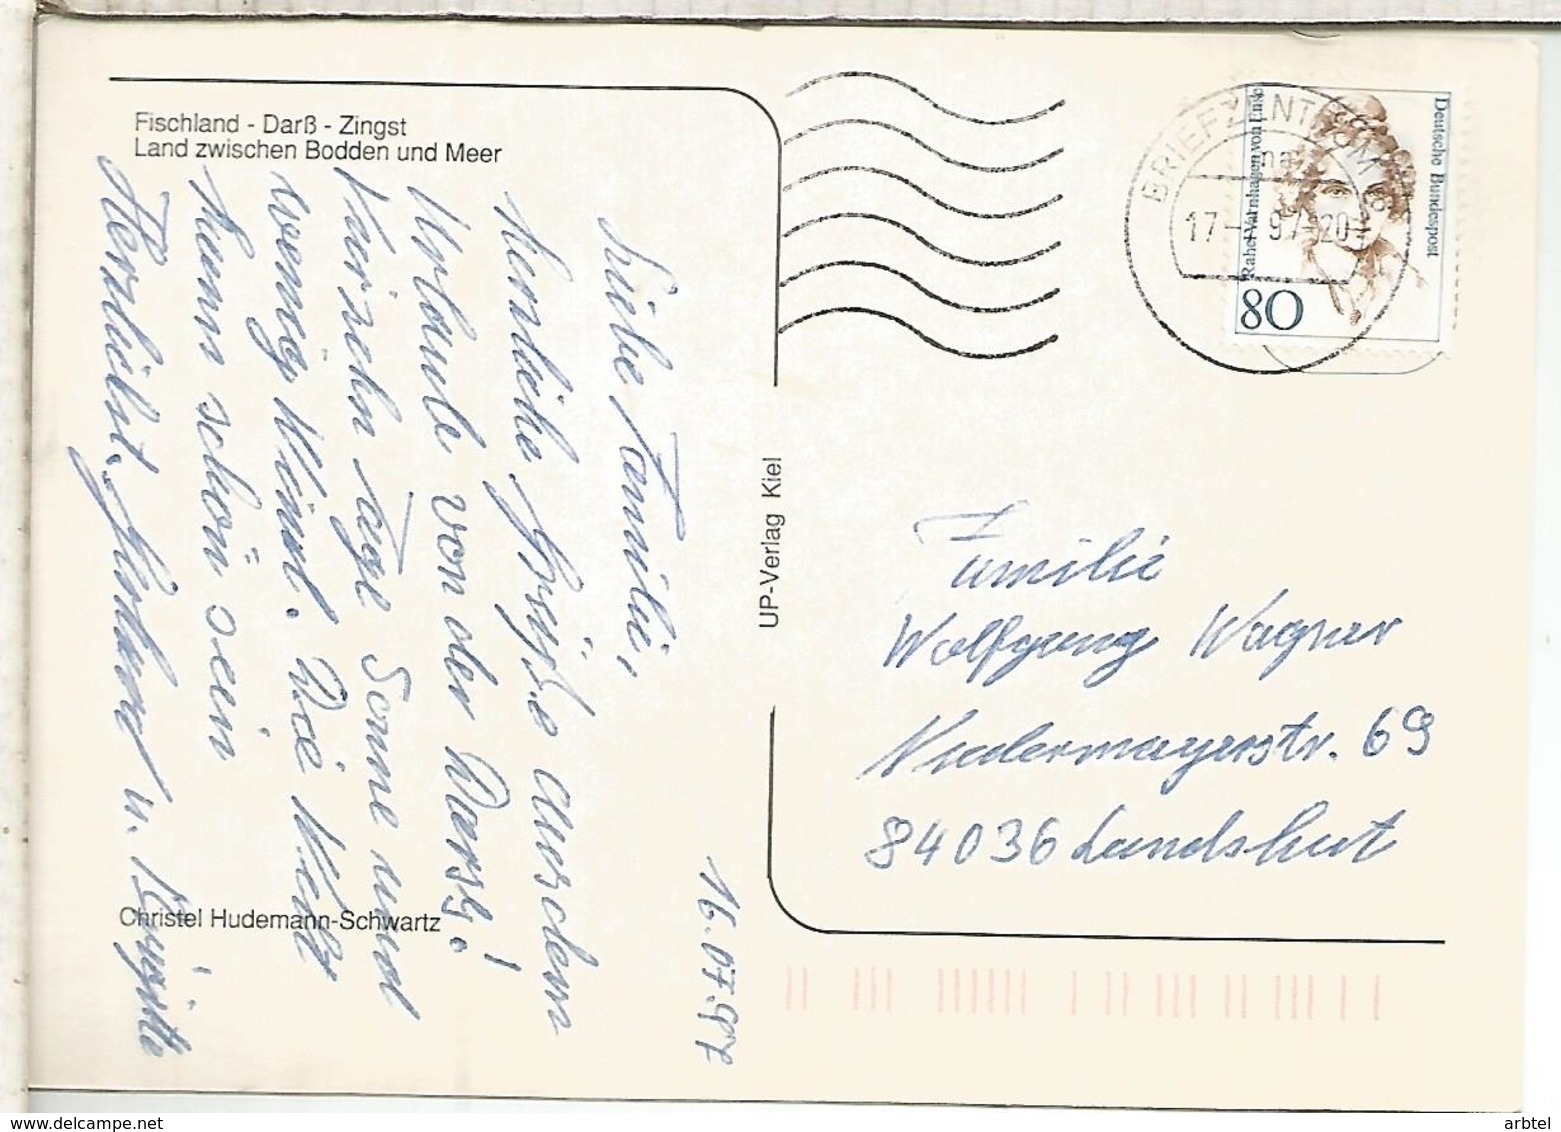 Fischland - Darß - Zingst
Land zwischen Bodden und Meer
16.07.97
Liebe Familie,
herzliche Grüße aus dem
Urlaub von der Darß!
Vierzehn Tage Sonne und
wenig Wind. Die Welt
kann schön sein
Herzlichst u. Brigitte
Christel Hudemann-Schwartz
UP-Verlag Kiel
BRIEFZENTRUM 18
na
17 97-20
Deutsche Bundespost
Rahel Varnhagen von Ense
80
Familie
Wolfgang Wagner
Niedermayerstr. 69
84036 Landshut
arbtel
www.delcampe.net